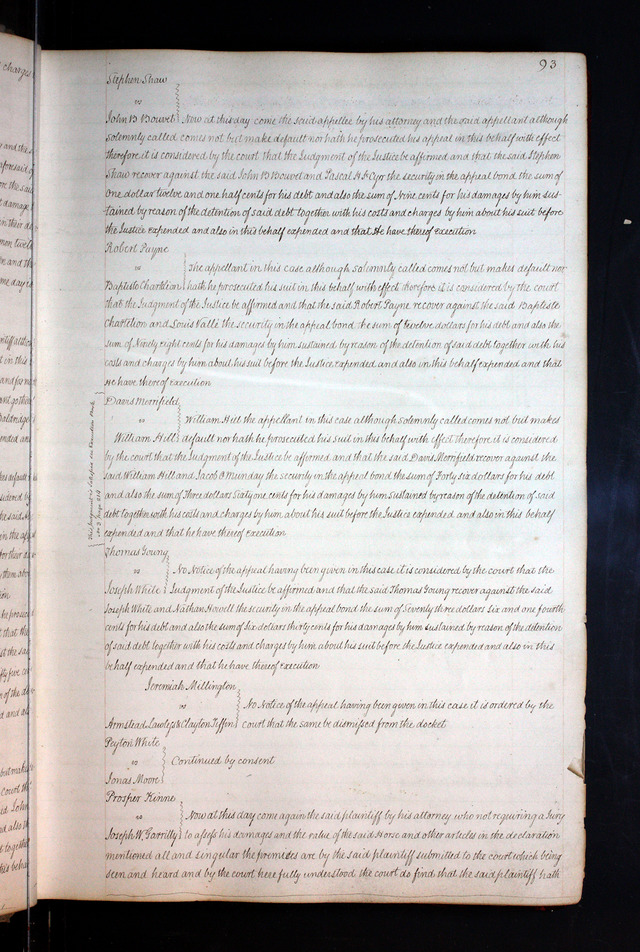 93
Stephen Shaw
vs
John B Bouvet } Now at this day come the said appellee by his attorney and the said appellant although
solemnly called comes not but make default nor hath he prosecuted his appeal in this behalf with effect
therefore it is considered by the court that the Judgment of the Justice be affirmed and that the said Stephen
Shaw recover against the said John B Bouvet and Pascal H St Cyr the security in the appeal bond the sum of
One dollar twelve and one half cents for his debt and also the sum of Nine cents for his damages by him sus-
tained by reason of the detention of said debt together with his costs and charges by him about his suit before
the Justice expended and also in this behalf expended and that He have thereof execution
Robert Payne
vs } The appellant in this case although solemnly called comes not but makes default nor
Baptiste Chartelion } hath he prosecuted his suit in this behalf with effect therefore it is considered by the court
that the Judgment of the Justice be affirmed and that the said Robert Payne recover against the said Baptiste
Chartelion and Louis Valli the security in the appeal bond the sum of twelve dollars for his debt and also the
sum of Ninety eight cents for his damages by him sustained by reason of the detention of said debt together with his
costs and charges by him about his suit before the Justice expended and also in this behalf expended and that
He have thereof execution
Davis Morrifield
vs } William Hill the appellant in this case although solemnly called comes not but makes
William Hill } default nor hath he prosecuted his suit in this behalf with effect therefore it is considered
by the court that the Judgment of the Justice be affirmed and that the said Davis Morrifield recover against the
said William Hill and Jacob O Munday the security in the appeal bond the sum of Forty six dollars for his debt
and also the sum of Three dollars Sixty one cents for his damages by him sustained by reason of the detention of said
debt together with his costs and charges by him about his suit before the Justice expended and also in this behalf
expended and that he have thereof execution
This Judgment is satisfied see Execution Book
Thomas Young
vs } No Notice of the appeal having been given in this case it is considered by the court that the
Joseph White } Judgment of the Justice be affirmed and that the said Thomas Young recover against the said
Joseph White and Nathan Howell the security in the appeal bond the sum of Seventy three dollars six and one fourth
cents for his debt and also the sum of Six dollars thirty cents for his damages by him sustained by reason of the detention
of said debt together with his costs and charges by him about his suit before the Justice expended and also in this
behalf expended and that he have thereof execution
Jeremiah Millington
vs } No Notice of the appeal having been given in this case it is ordered by the
Armstead Lawless & Clayton Tiffin } court that the same be dismissed from the docket
Peyton White
vs } Continued by consent
Jonas Moore
Prosper Kinne
vs } Now at this day come again the said plaintiff by his attorney who not requiring a Jury
Joseph W. Garrilly } to assess his damages and the value of the said Horse and other articles in the declaration
mentioned all and singular the premises are by the said plaintiff submitted to the court which being
seen and heard and by the court here fully understood the court do find that the said plaintiff hath